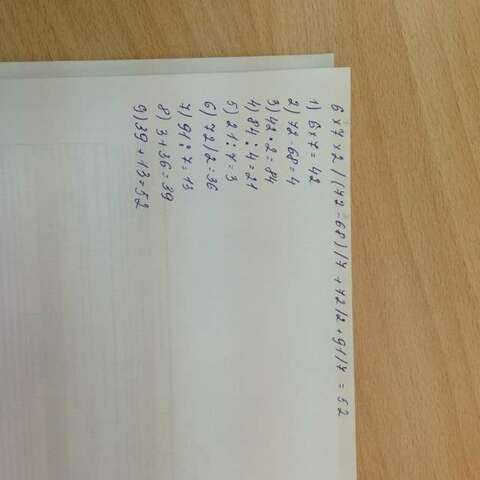 6 × 7 × 2 / (72 - 68) / 7 + 72 / 2 + 91 / 7 = 52
1) 6 × 7 = 42
2) 72 - 68 = 4
3) 42 · 2 = 84
4) 84 : 4 = 21
5) 21 : 7 = 3
6) 72 / 2 = 36
7) 91 : 7 = 13
8) 3 + 36 = 39
9) 39 + 13 = 52